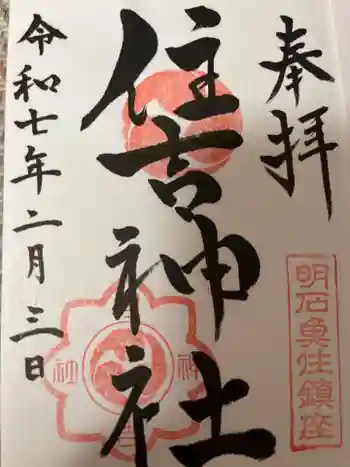 奉拝
明石魚住鎮座
住吉神社
令和七年二月三日